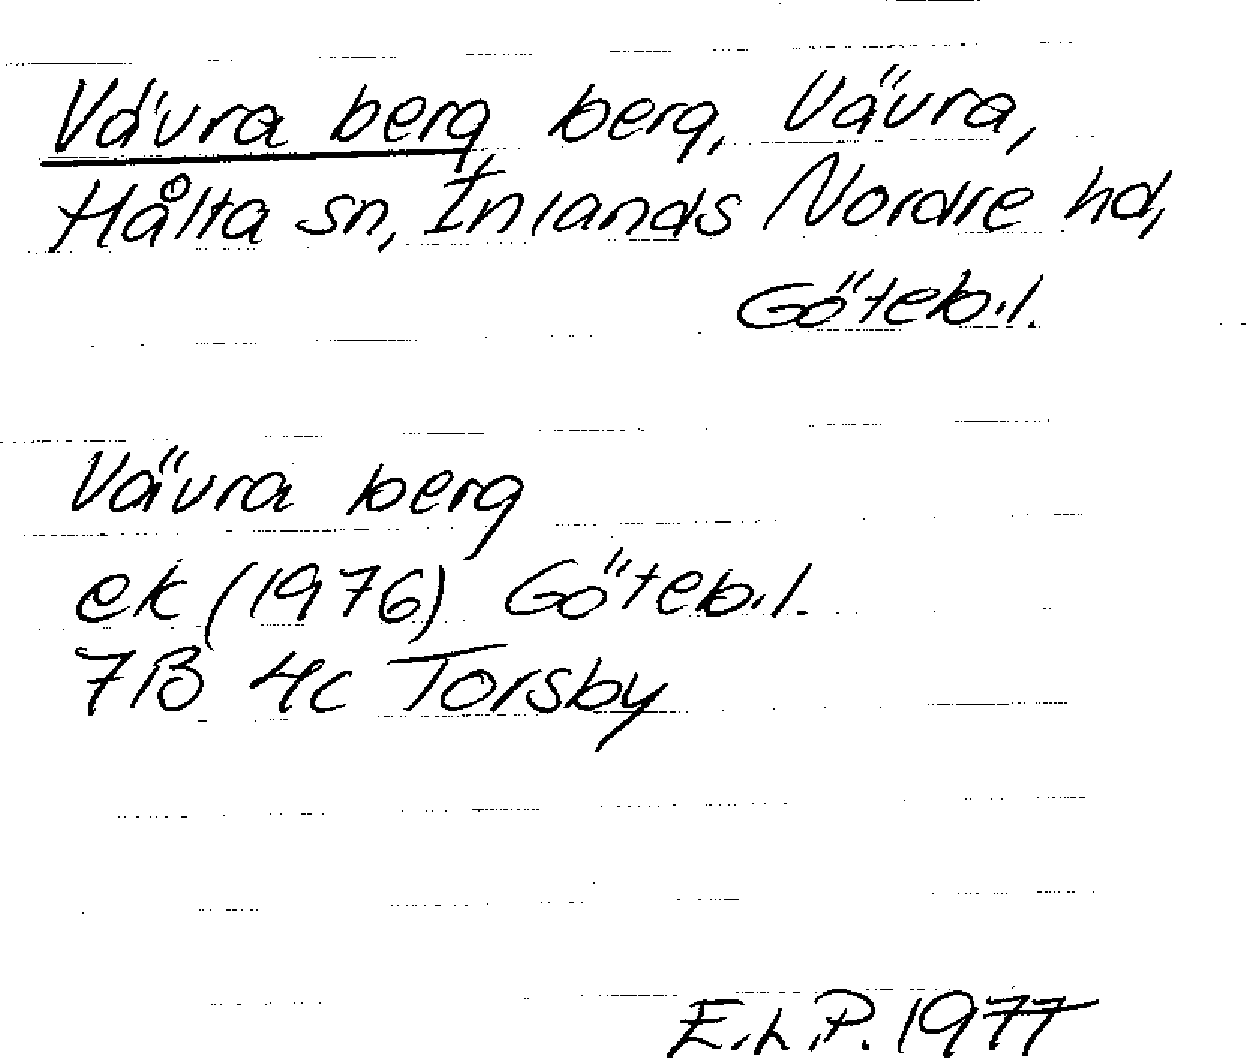 Vävra berg berg, Vävra,
Hålta sn, Inlands Nordre hd,
Göteb.l.
Vävra berg
ek (1976) Göteb.l.
7B 4c Torsby
E.L.P. 1977